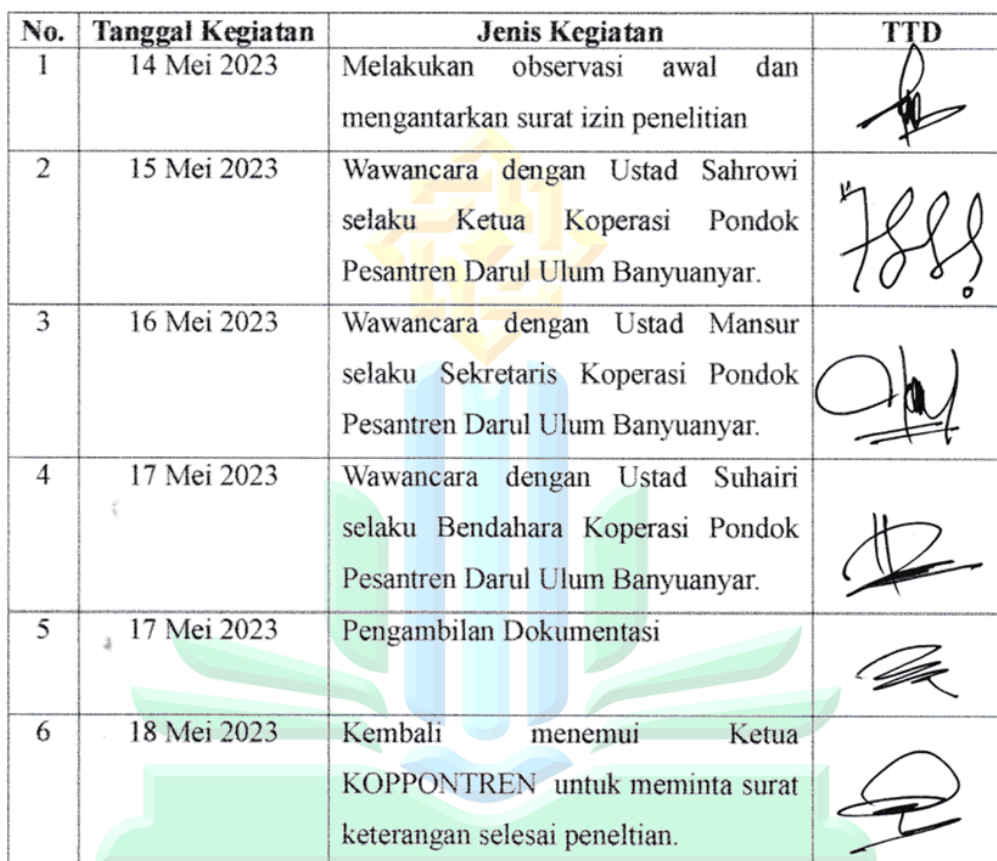 No. Tanggal Kegiatan Jenis Kegiatan TTD
1 14 Mei 2023 Melakukan observasi awal dan
mengantarkan surat izin penelitian
2 15 Mei 2023 Wawancara dengan Ustad Sahrowi
selaku Ketua Koperasi Pondok
Pesantren Darul Ulum Banyuanyar.
3 16 Mei 2023 Wawancara dengan Ustad Mansur
selaku Sekretaris Koperasi Pondok
Pesantren Darul Ulum Banyuanyar.
4 17 Mei 2023 Wawancara dengan Ustad Suhairi
selaku Bendahara Koperasi Pondok
Pesantren Darul Ulum Banyuanyar.
5 17 Mei 2023 Pengambilan Dokumentasi
6 18 Mei 2023 Kembali menemui Ketua
KOPPONTREN untuk meminta surat
keterangan selesai peneltian.